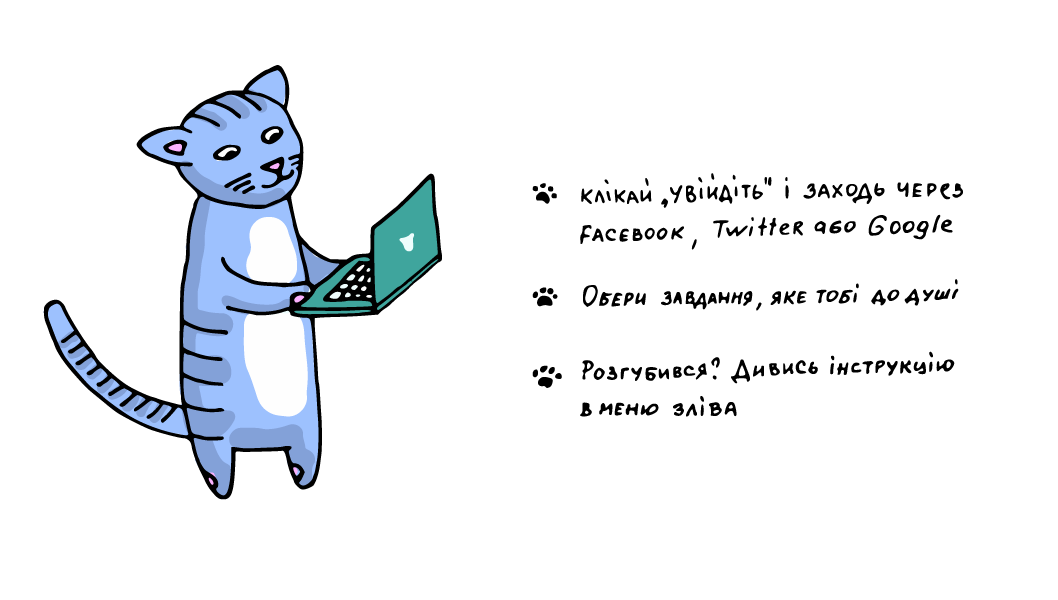 Клікай „увійдіть" і заходь через
Facebook, Twitter або Google
Обери завдання, яке тобі до душі
Розгубився? Дивись інструкцію
в меню зліва